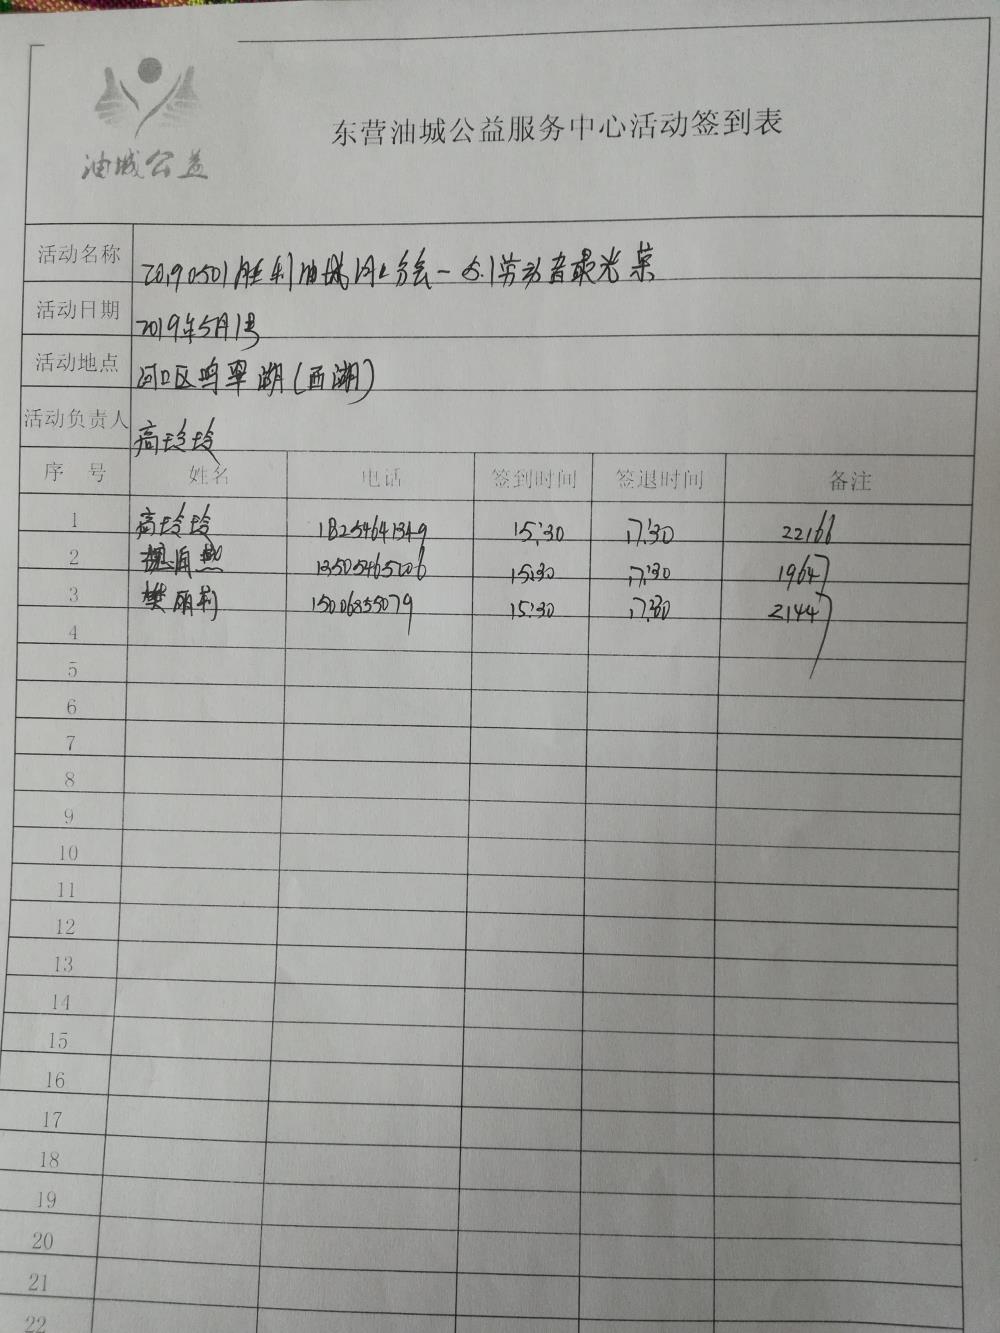 油城公益
东营油城公益服务中心活动签到表
活动名称 20190501胜利油城河口分会-5.1劳动者最光荣
活动日期 2019年5月1号
活动地点 河口区鸣翠湖(西湖)
活动负责人 高玲玲
序 号 姓名 电话 签到时间 签退时间 备注
1 高玲玲 18254641349 15:30 17:30 22166
2 15:30 17:30 19647
3 樊丽莉 15006855079 15:30 17:30 21447
4
5
6
7
8
9
10
11
12
13
14
15
16
17
18
19
20
21
22